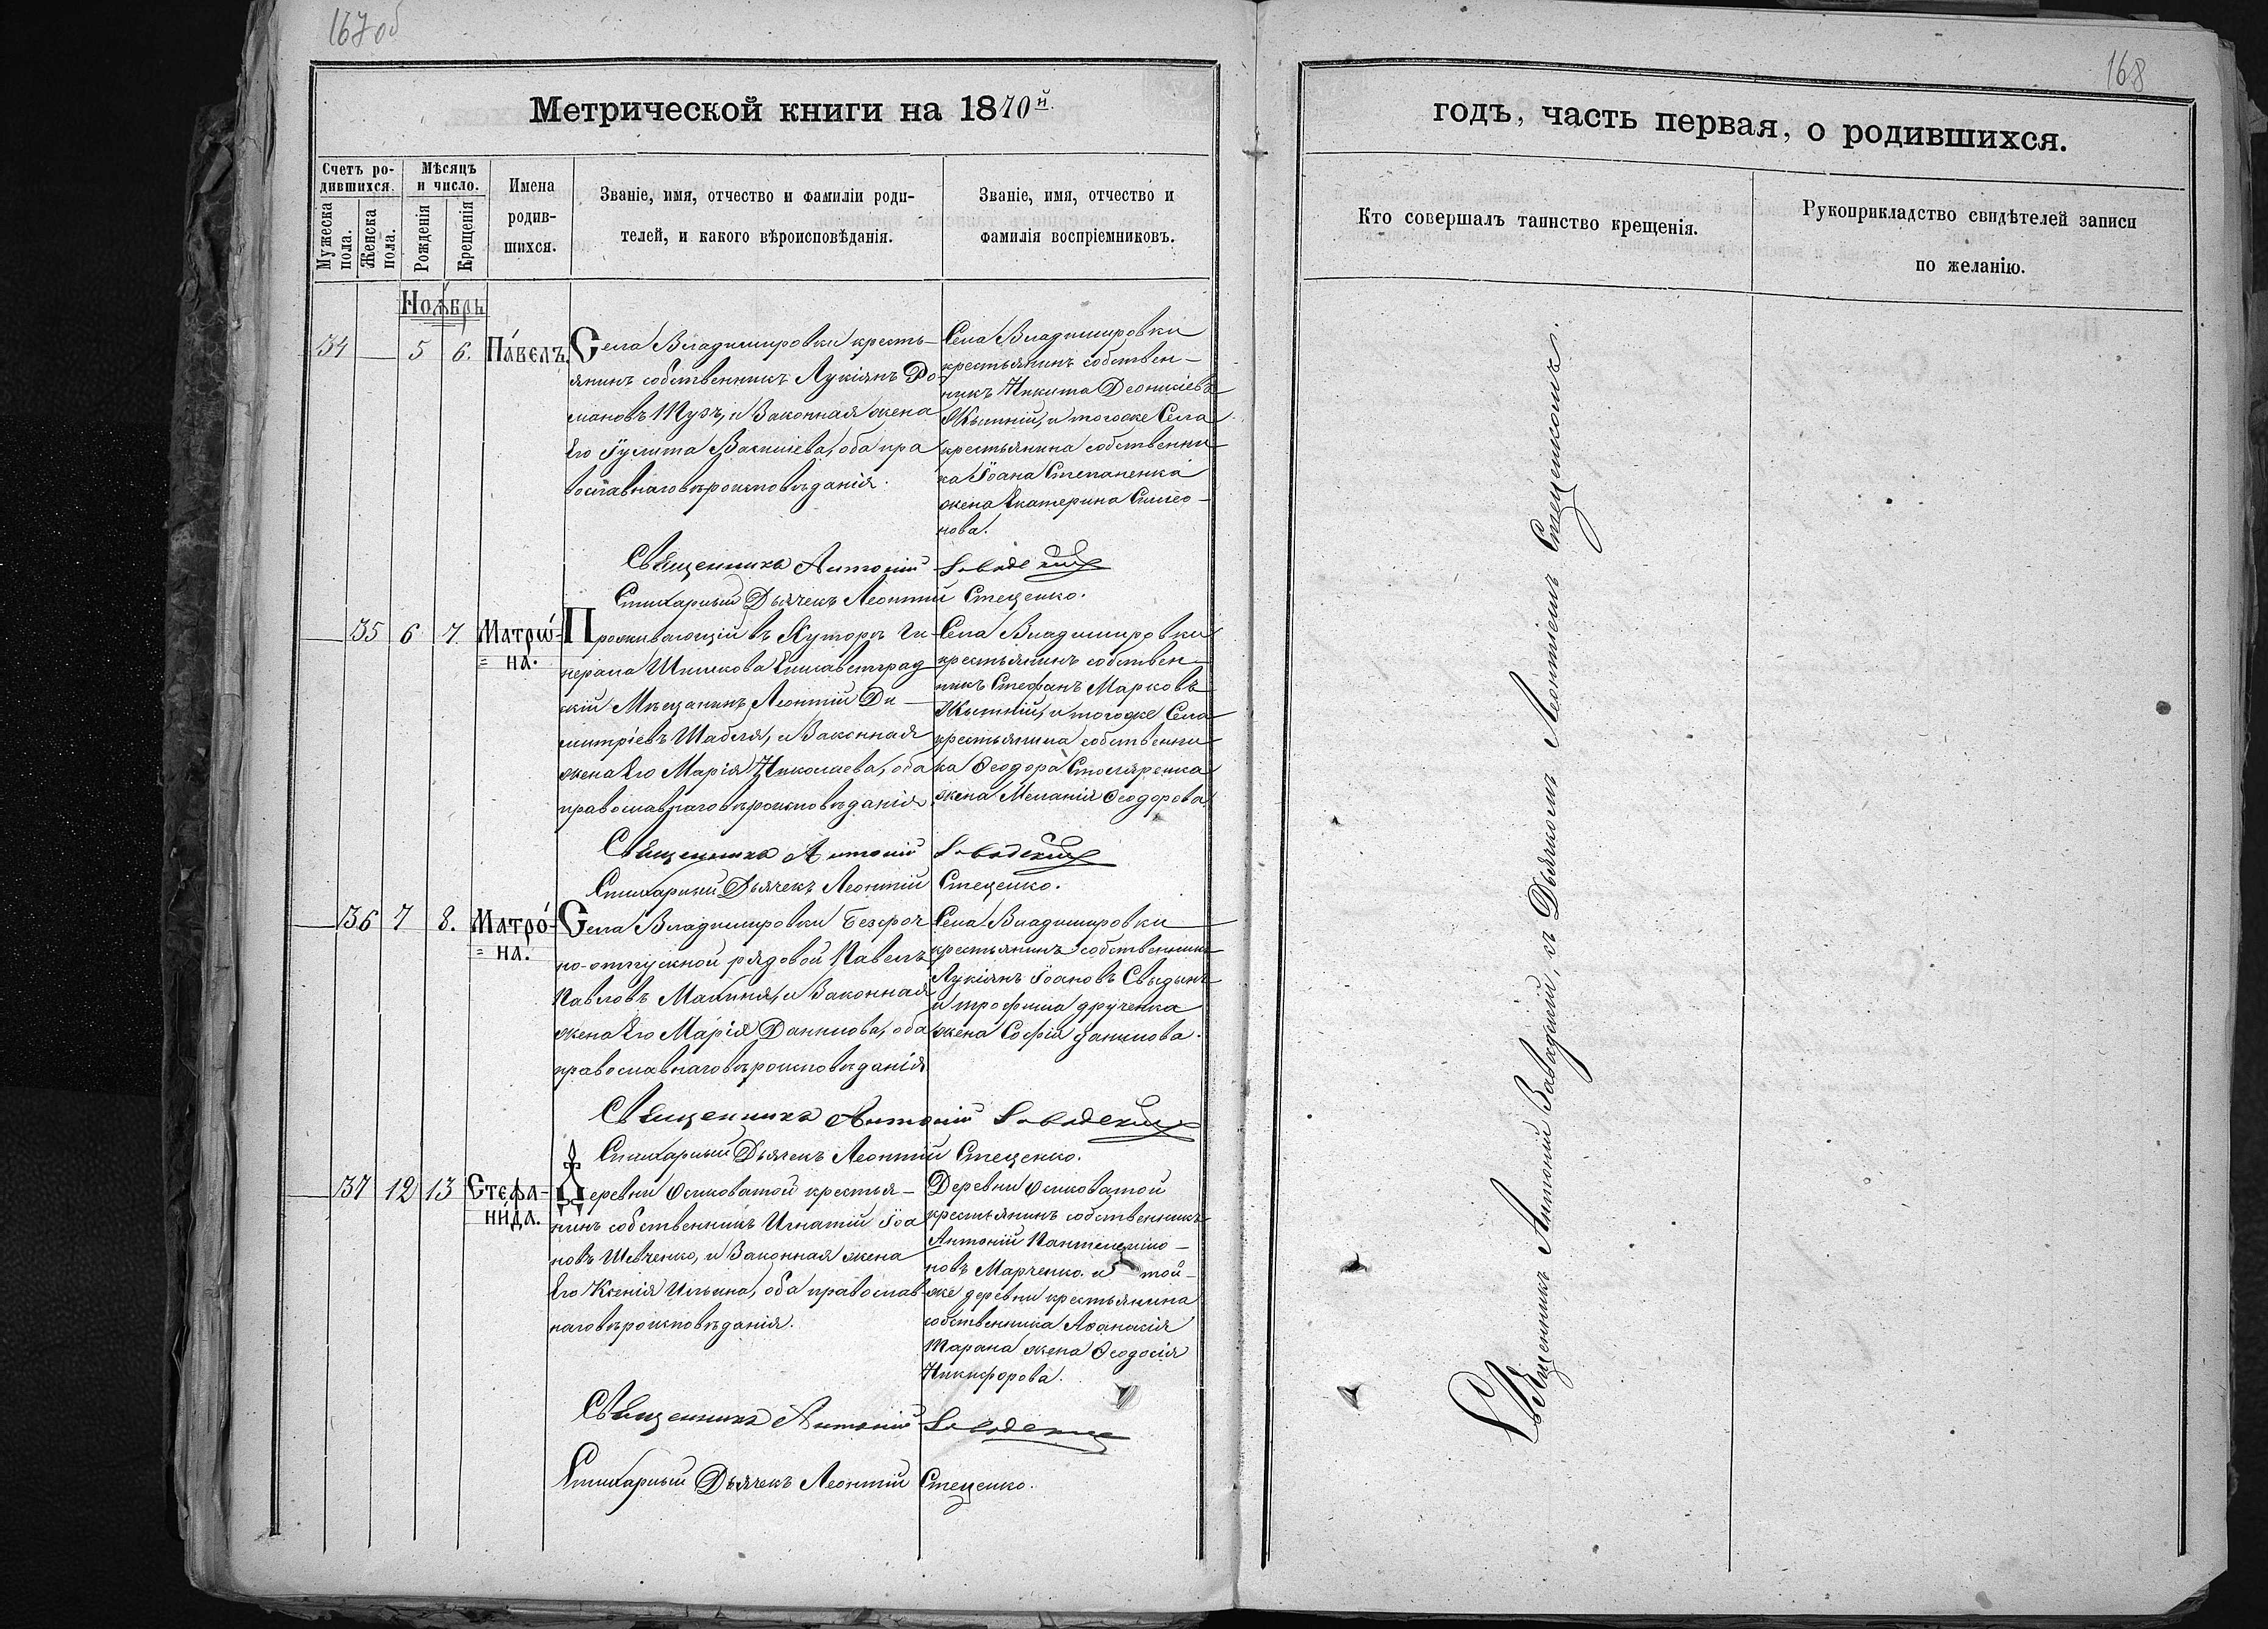 167об
168
Метрической книги на 1870й.
годъ, часть первая, о родившихся.
Счетъ ро-
дившихся.
Мужеска
пола.
Женска
пола.
Мѣсяцъ
и число.
Рожденія
Крещенія
Имена
родив-
шихся.
Званіе, имя, отчество и фамиліи роди-
телей, и какого вѣроисповѣданія.
Званіе, имя, отчество и
фамилія воспріемниковъ.
Кто совершалъ таинство крещенія.
Рукоприкладство свидѣтелей записи
по желанію.
Ноябрь
34 — 5 6. Павелъ.
Села Владимировки кресть-
янинъ собственникъ Лукіянъ Ро-
мановъ Тузъ, и Законная жена
Его Іулита Василіева, оба пра
вославнаго вѣроисповѣданія.
Села Владимировки
крестьянинъ собствен-
никъ Никита Деонисіевъ
и тогоже Села
крестьянина собственни
ка Іоана Степаненка
жена Екатерина Симео-
нова.
Священникъ Антоній Завадскій
Стихарный Дьячекъ Леонтій Стеценко.
— 35 6 7 Матрѡ-
на.
Проживающій въ Хуторѣ Ге-
нерала Шишкова Елисаветград
скій Мѣщанинъ Леонтій Ди-
митріевъ Шабля, и Законная
жена Его Марія Николаева, оба
православнаго вѣроисповѣданія.
Села Владимировки
крестьянинъ собствен
никъ Стефанъ Марковъ
и тогоже Села
крестьянина собственни
ка Ѳеодора Столяренка
жена Меланія Ѳеодорова.
Священникъ Антоній Завадскій
Стихарный Дьячекъ Леонтій Стеценко.
— 36 7 8. Матро-
на.
Села Владимировки безсроч
но-отпускной рядовой Павелъ
Павловъ Махиня, и Законная
жена Его Марія Данилова, оба
православнаго вѣроисповѣданія
Села Владимировки
крестьянинъ собственникъ
Лукіянъ Іоановъ
и трофима друченка
жена Софія данилова.
Священникъ Антоній Завадскій
Стихарный Дьячекъ Леонтій Стеценко.
— 37 12 13 Стефа-
нида.
Деревни Осиковатой крестья-
нинъ собственникъ Игнатій Іоа
новъ Шевченко, и Законная жена
Его Ксенія Ильина, оба православ
наго вѣроисповѣданія.
Деревни Осиковатой
крестьянинъ собственникъ
Антоній Пантелеимо-
новъ Марченко. и той-
же деревни крестьянина
собственника Аѳанасія
Тарана жена Ѳеодосія
Никифорова.
Священникъ Антоній Завадскій
Стихарный Дьячекъ Леонтій Стеценко.
Священникъ Антоній Завадскій, съ Дьячкомъ Леонтіемъ Стеценкомъ.